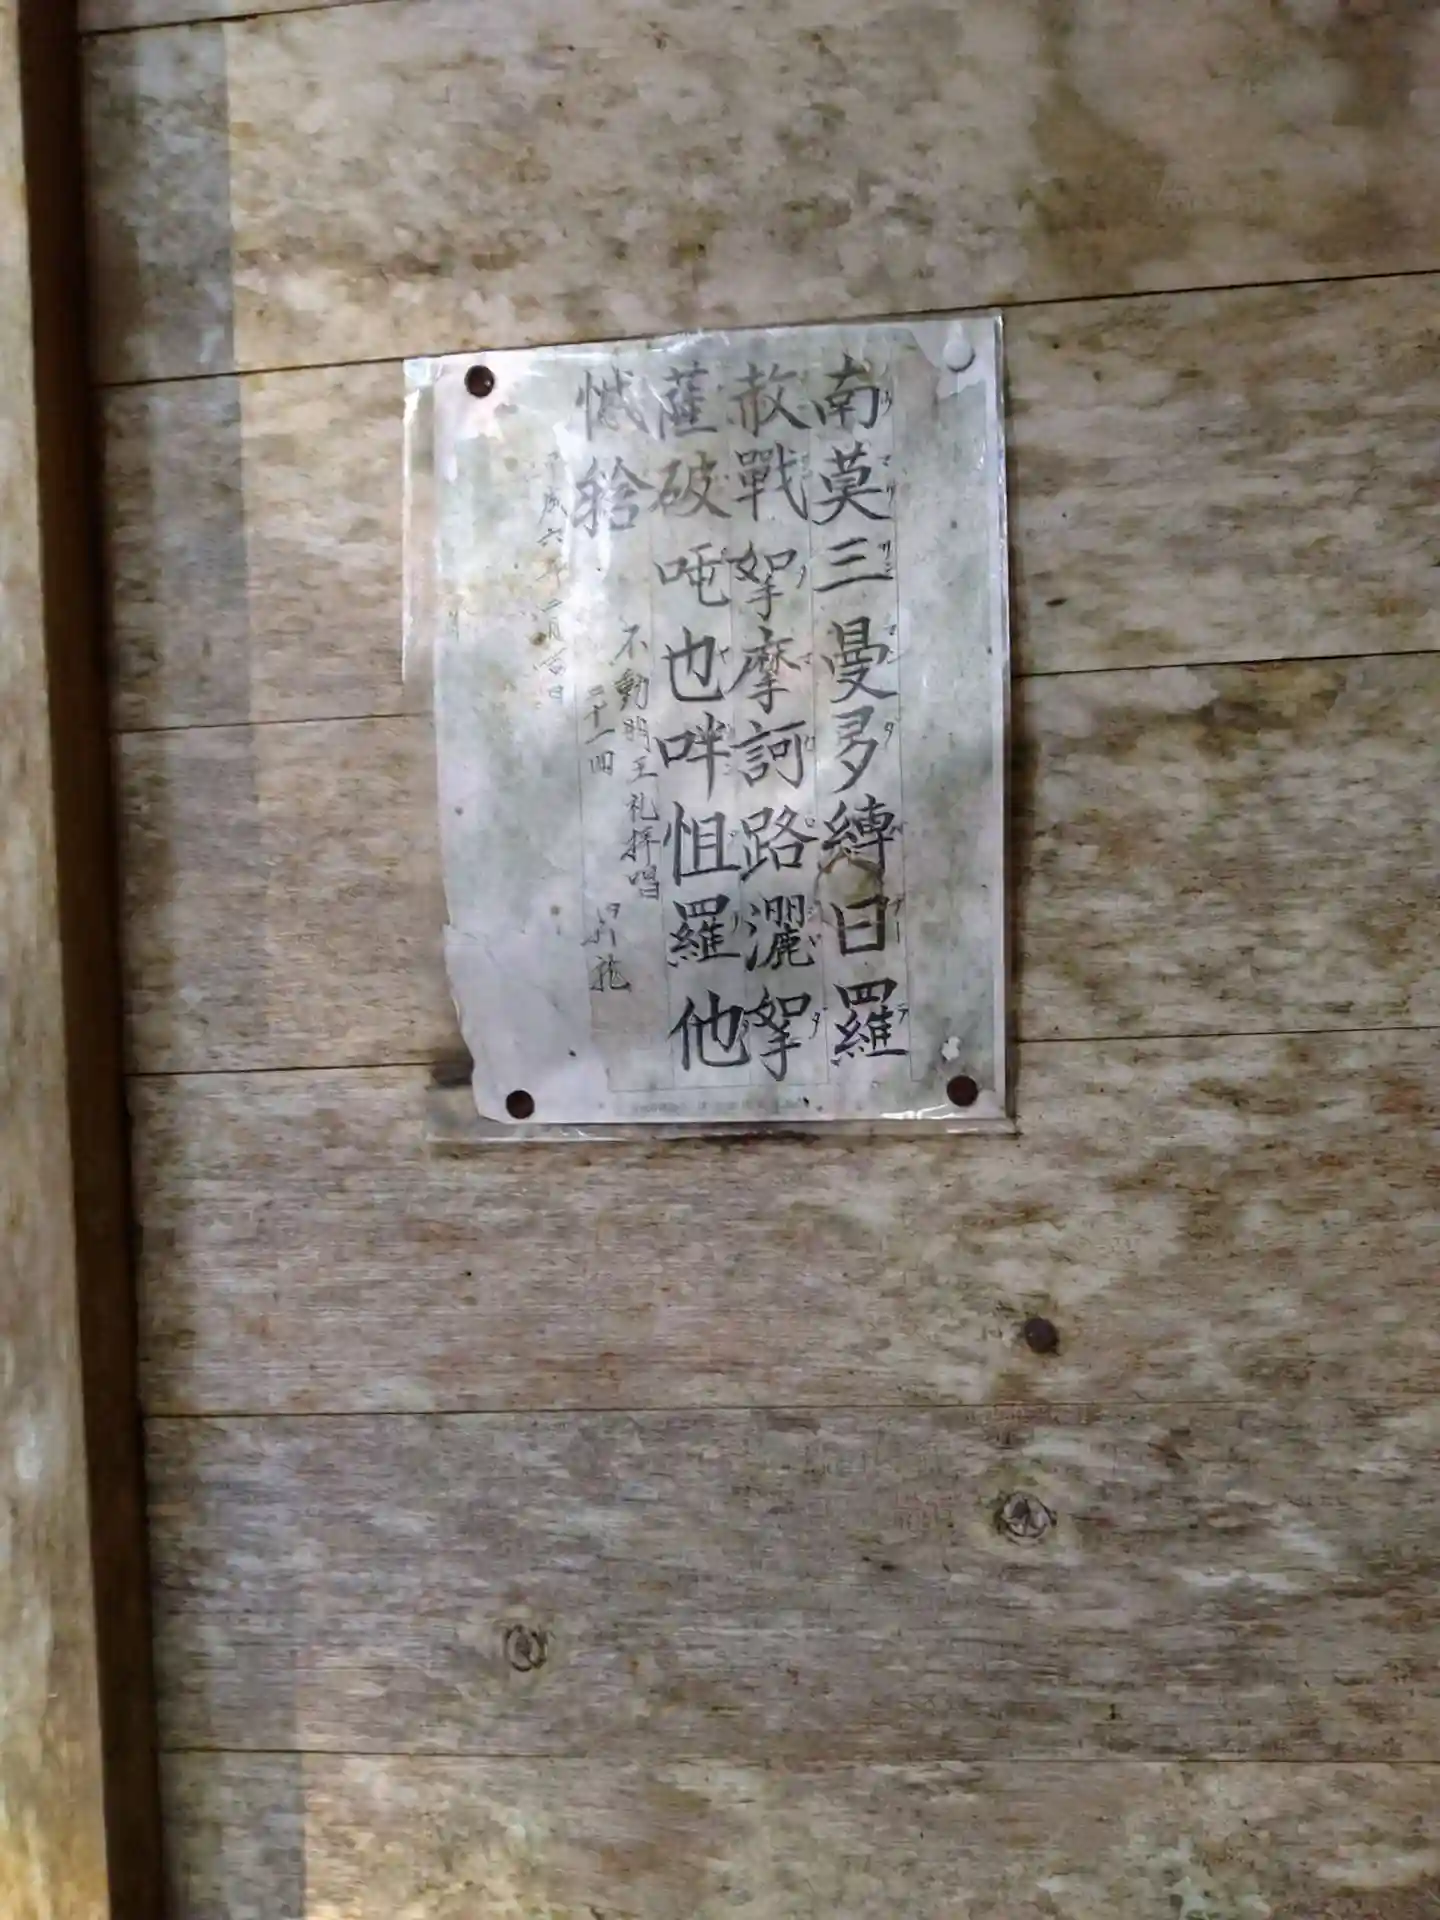 南莫三曼多縛日羅
赦戰拏摩訶路灑拏
薩破吨也吽怛羅他
憾𤚥
不動明王礼拝唱
二十一四
平成六年二月吉日